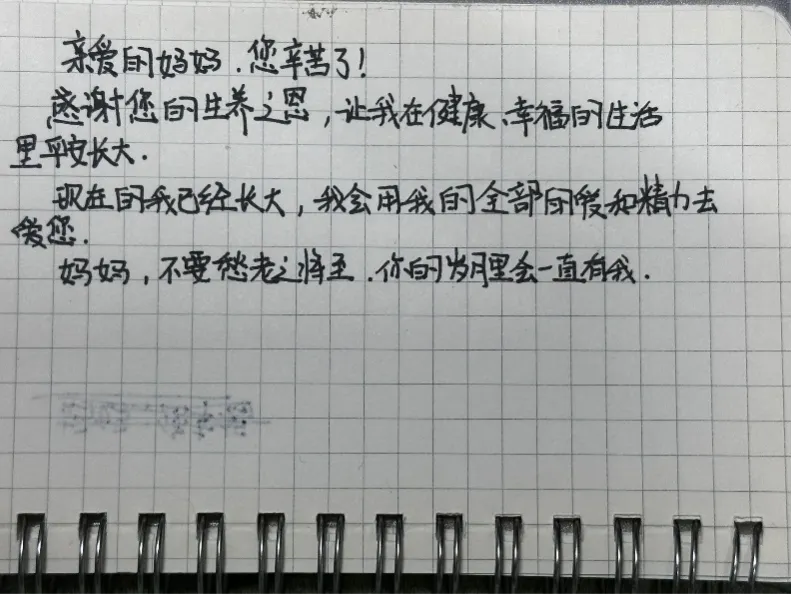 亲爱的妈妈.您辛苦了!
感谢您的生养之恩,让我在健康、幸福的生活
里平安长大.
现在的我已经长大,我会用我的全部的爱和精力去
爱您.
妈妈,不要愁老之将至.你的岁月里会一直有我.